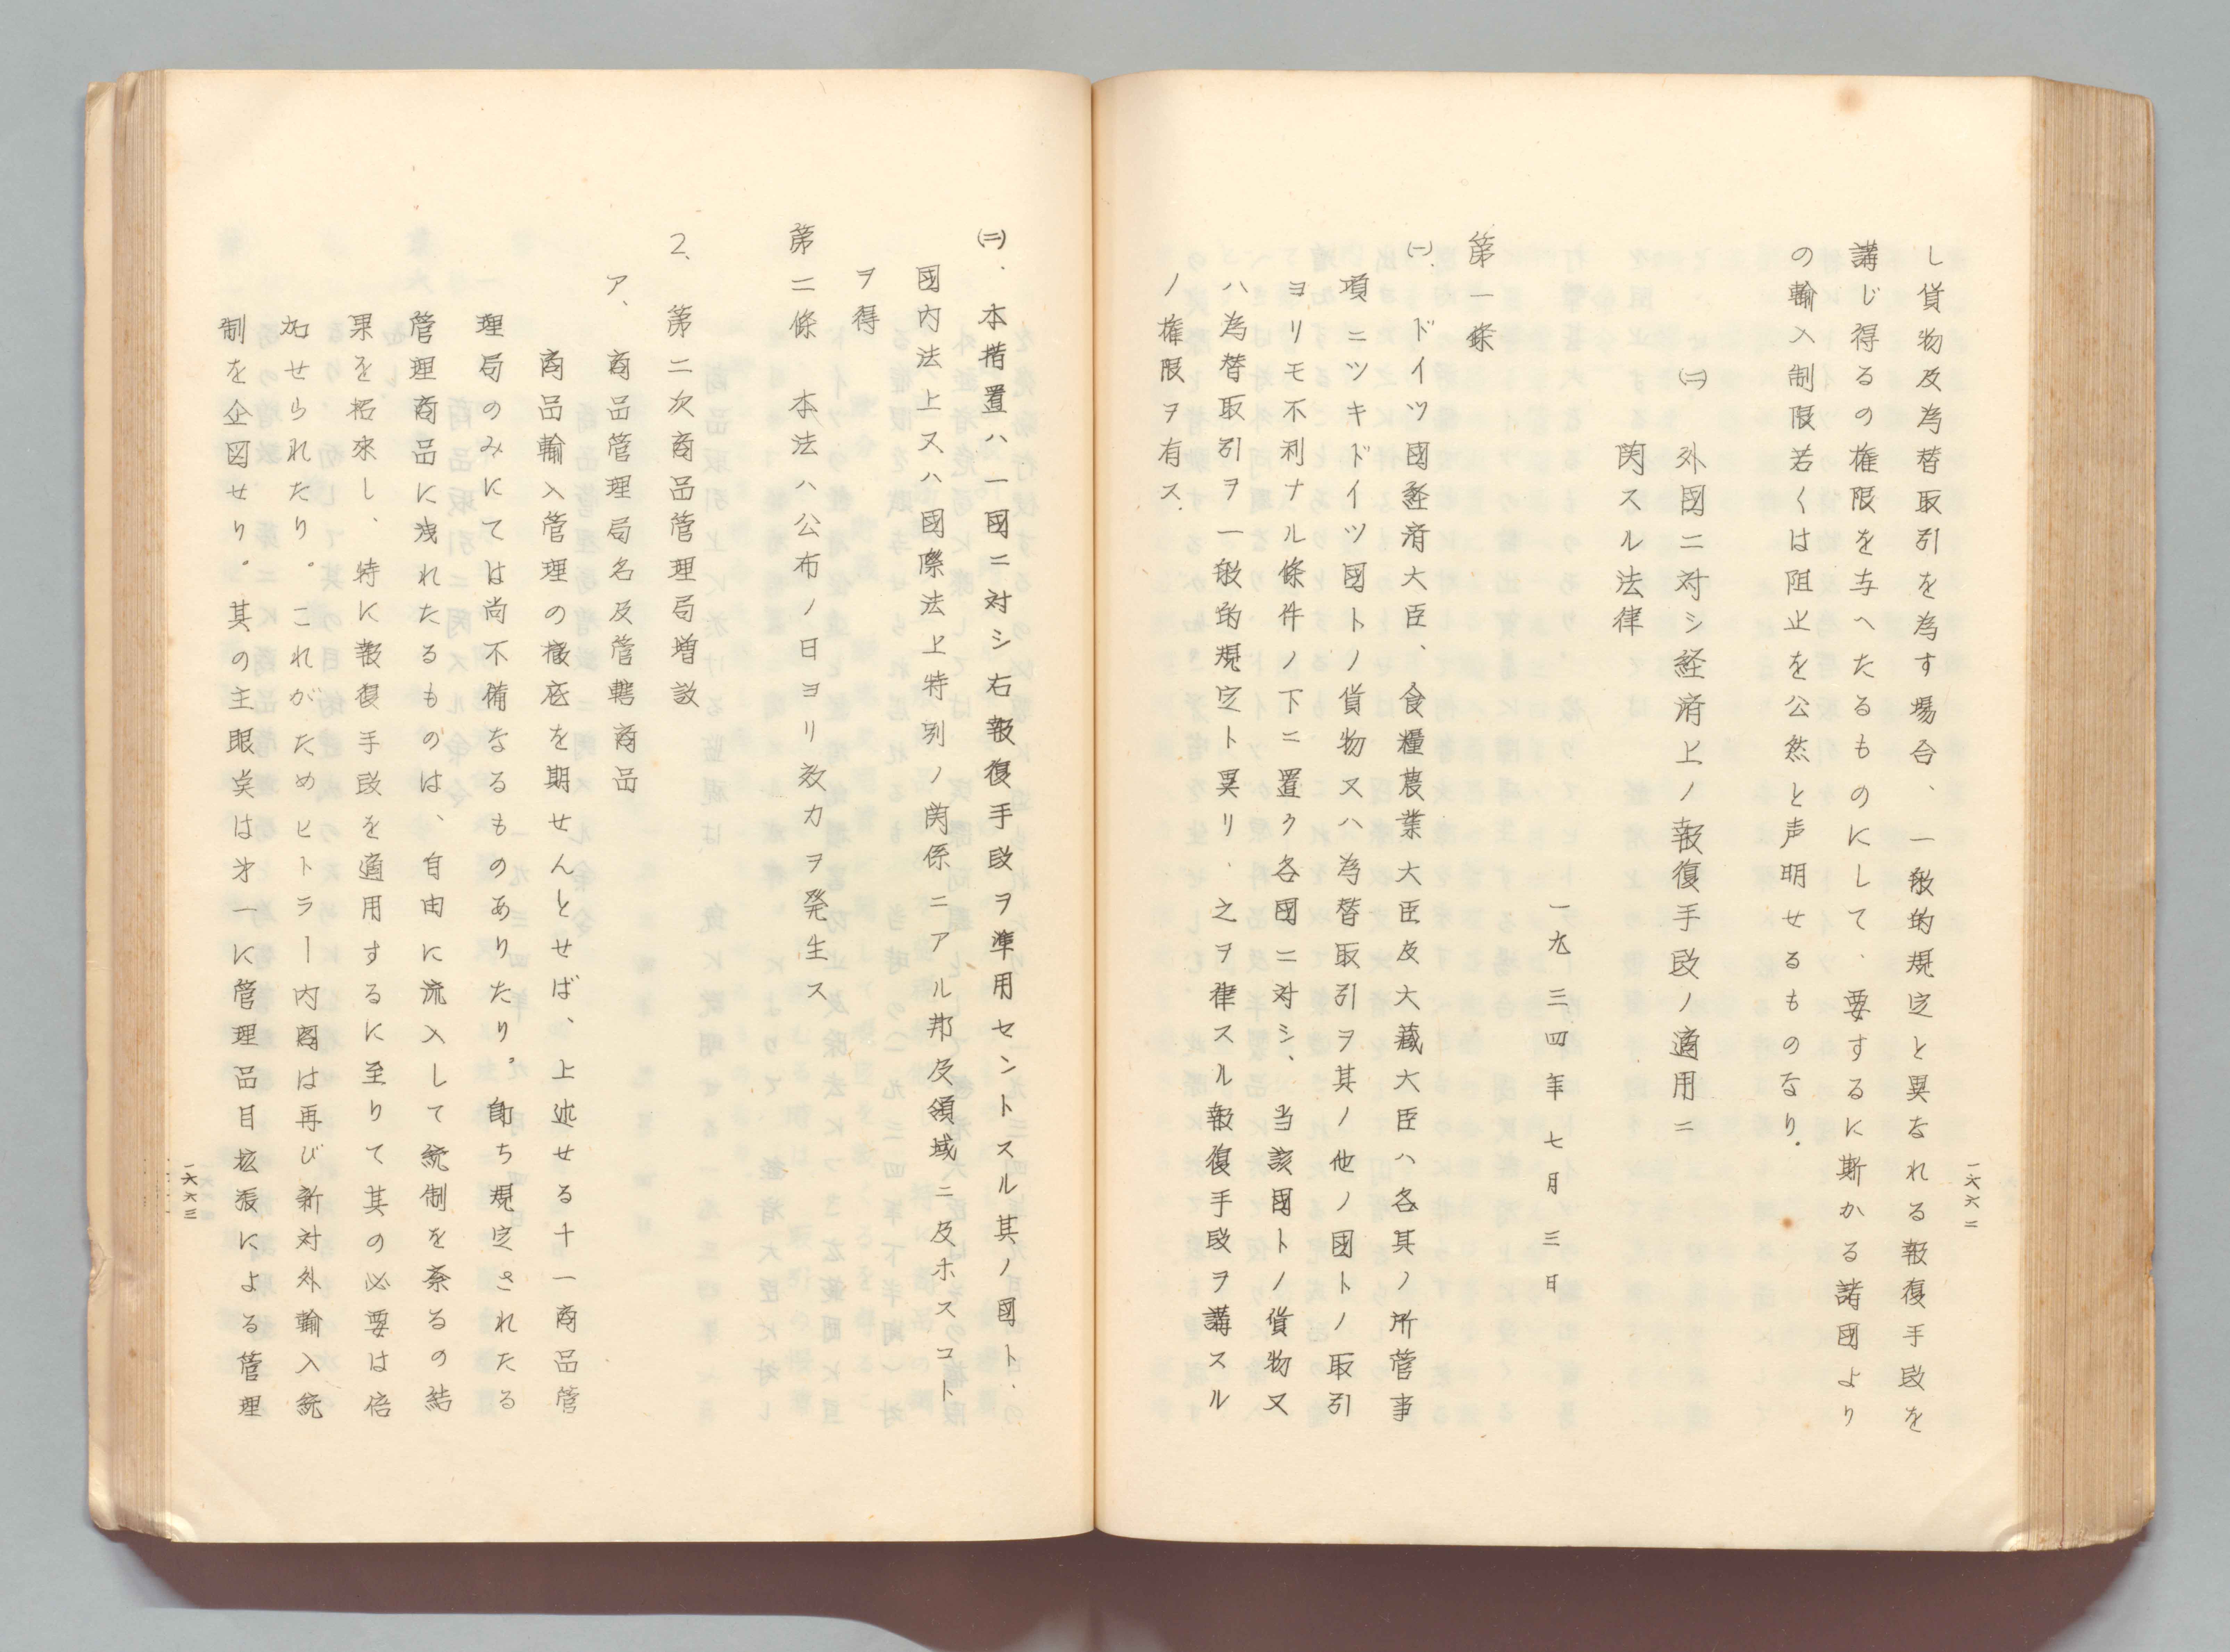 し貨物及為替取引を為す場合、一般的規定と異なれる報復手段を
講じ得るの権限を与へたるものにして、要するに斯かる諸國より
の輸入制限若くは阻止を公然と声明せるものなり。
㈡ 外國ニ対シ経済上ノ報復手段ノ適用ニ
関スル法律
一九三四年七月三日
第一條
㈠. ドイツ國経済大臣、食糧農業大臣及大藏大臣ハ各其ノ所管事
項ニツキドイツ國トノ貨物又ハ為替取引ヲ其ノ他ノ國トノ取引
ヨリモ不利ナル條件ノ下ニ置ク各國ニ対シ、当該國トノ貨物又
ハ為替取引ヲ一般的規定ト異リ、之ヲ律スル報復手段ヲ講スル
ノ権限ヲ有ス.
一六六二
㈡. 本措置ハ一國ニ対シ右報復手段ヲ準用セントスル其ノ國ト、
國内法上又ハ國際法上特別ノ関係ニアル邦及領域ニ及ホスコト
ヲ得
第二條 本法ハ公布ノ日ヨリ效力ヲ発生ス
2、第二次商品管理局増設
ア、商品管理局名及管轄商品
商品輸入管理の徹底を期せんとせば、上述せる十一商品管
理局のみにては尚不備なるものありたり。即ち規定されたる
管理商品に洩れたるものは、自由に流入して統制を紊るの結
果を招來し、特に報復手段を適用するに至りて其の必要は倍
加せられたり。これがためヒトラー内閣は再び新対外輸入統
制を企図せり。其の主眼点は才一に管理品目拡張による管理
一六六三